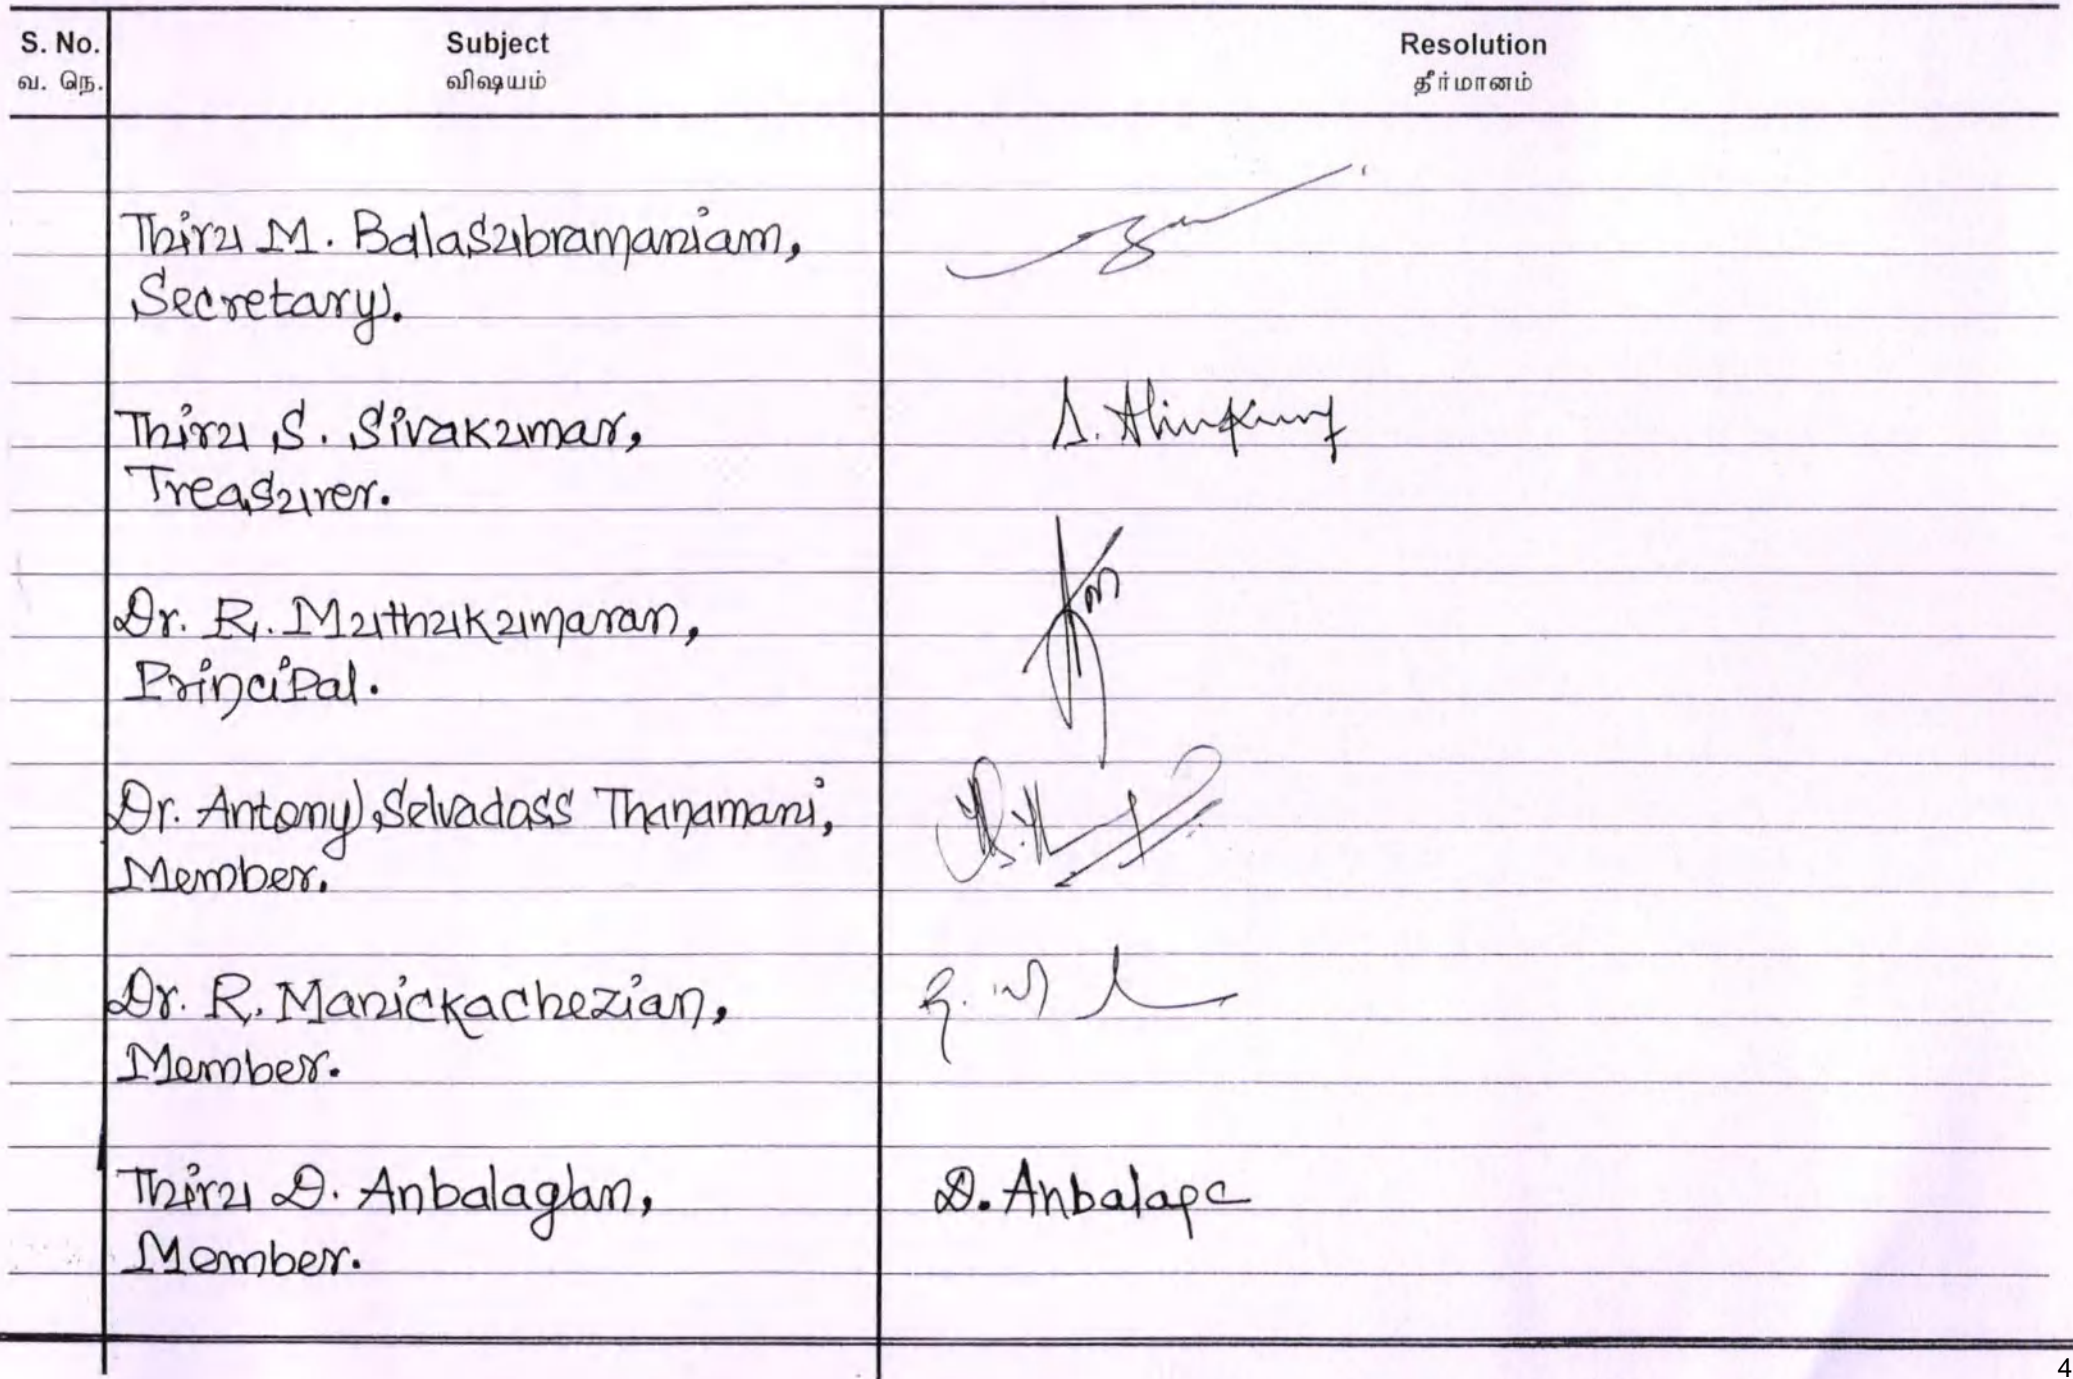 S. No. Subject Resolution
வ. நெ. விஷயம் தீர்மானம்
Thiru M. Balasubramaniam,
Secretary.
Thiru S. Sivakumar,
Treasurer.
Dr. R. Muthukumaran,
Principal.
Dr. Antony Selvadass Thanamani,
Member.
Dr. R. Manickachezian,
Member.
Thiru D. Anbalagan, D. Anbalaga
Member.
4